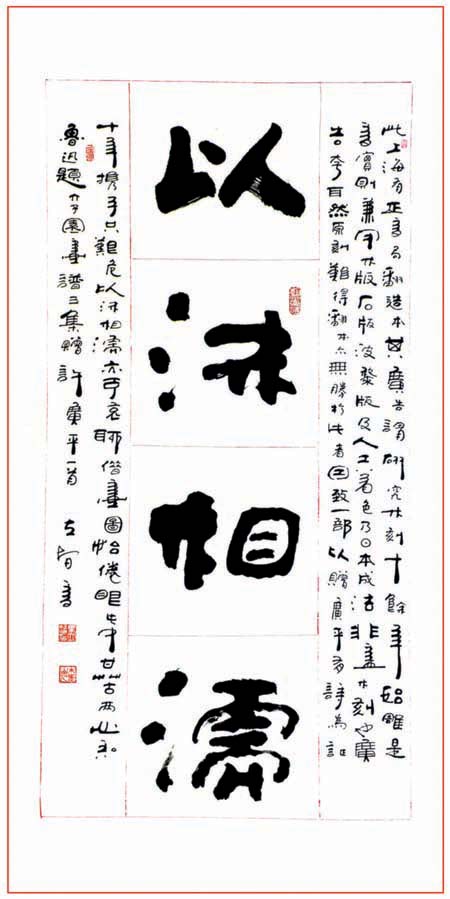 此上海有正書局翻造本其廣告謂研究木刻十餘年始雕是
書實則兼用木版石版波黎版及人工着色乃日本成法非盡木刻也廣
告夸耳然原刻難得翻本亦無勝於此者因致一部以贈廣平有詩為証
以沫相濡
十年携手共艱危以沫相濡亦可哀聊借畫圖怡倦眼此中甘苦兩心知
魯迅題芥子園畫譜三集贈許廣平一首 書